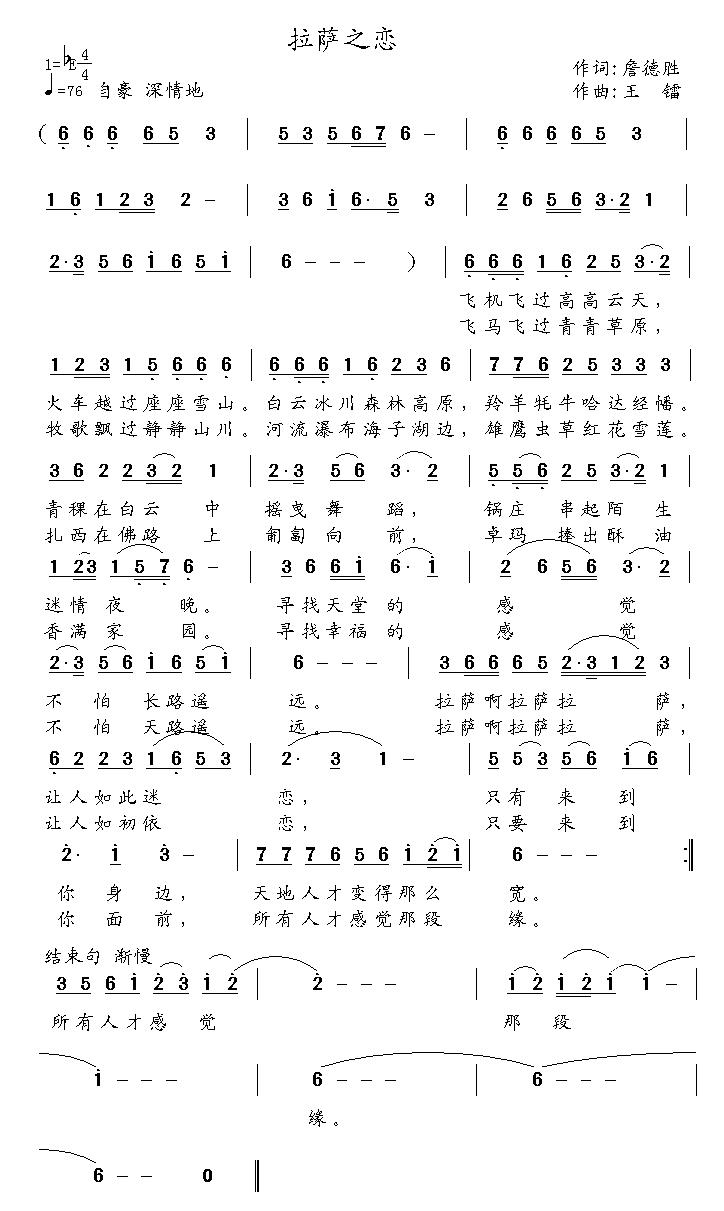 拉萨之恋
1=♭E 4/4
作词:詹德胜
♩=76 自豪 深情地
作曲:王 镭
( 6 6 6 6 5 3 | 5 3 5 6 7 6 - | 6 6 6 6 5 3 |
1 6 1 2 3 2 - | 3 6 i 6· 5 3 | 2 6 5 6 3·2 1 |
2·3 5 6 i 6 5 i | 6 - - - ) | 6 6 6 1 6 2 5 3·2 |
飞机飞过高高云天,
飞马飞过青青草原,
1 2 3 1 5 6 6 6 | 6 6 6 1 6 2 3 6 | 7 7 6 2 5 3 3 3 |
火车越过座座雪山。白云冰川森林高原,羚羊牦牛哈达经幡。
牧歌飘过静静山川。河流瀑布海子湖边,雄鹰虫草红花雪莲。
3 6 2 2 3 2 1 | 2·3 5 6 3· 2 | 5 5 6 2 5 3·2 1 |
青稞在白云 中 摇曳舞 蹈, 锅庄 串起陌生
扎西在佛路 上 匍匐向 前, 卓玛 捧出酥油
1 2 3 1 5 7 6 - | 3 6 6 i 6· i | 2 6 5 6 3· 2 |
迷情夜 晚。 寻找天堂的 感 觉
香满家 园。 寻找幸福的 感 觉
2·3 5 6 i 6 5 i | 6 - - - | 3 6 6 6 5 2·3 1 2 3 |
不 怕 长路遥 远。 拉萨啊拉萨拉 萨,
不 怕 天路遥 远。 拉萨啊拉萨拉 萨,
6 2 2 3 1 6 5 3 | 2· 3 1 - | 5 5 3 5 6 i 6 |
让人如此迷 恋, 只有 来 到
让人如初依 恋, 只要 来 到
2· i 3 - | 7 7 7 6 5 6 i 2 i | 6 - - - :‖
你 身 边, 天地人才变得那么 宽。
你 面 前, 所有人才感觉那段 缘。
结束句 渐慢
3 5 6 i 2 3 i 2 | 2 - - - | i 2 i 2 i i - |
所有人才感 觉 那 段
i - - - | 6 - - - | 6 - - - |
缘。
6 - - 0 ‖